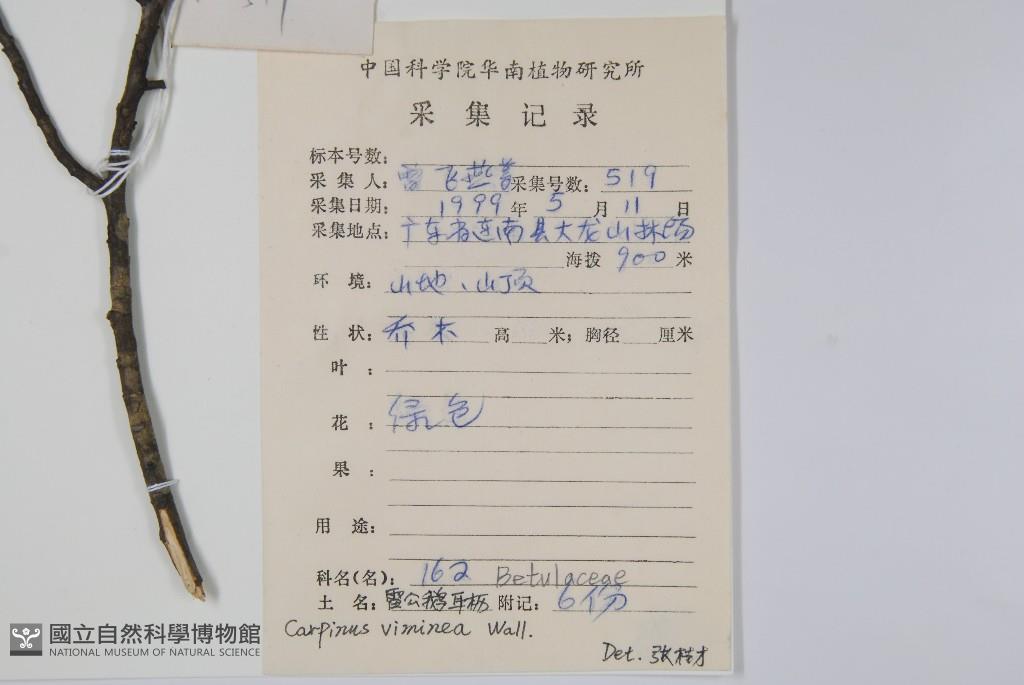 中国科学院华南植物研究所
采集记录
标本号数:
采集人: 雷飞燕等 采集号数: 519
采集日期: 1999年5月11日
采集地点: 广东省连南县大龙山林场
海拨 900 米
环境: 山地、山顶
性状: 乔木 高 米; 胸径 厘米
叶:
花: 绿色
果:
用途:
科名(名): 162 Betulaceae
土名: 雷公鹅耳枥 附记: 6份
Carpinus viminea Wall.
Det. 张桂才
國立自然科學博物館
NATIONAL MUSEUM OF NATURAL SCIENCE